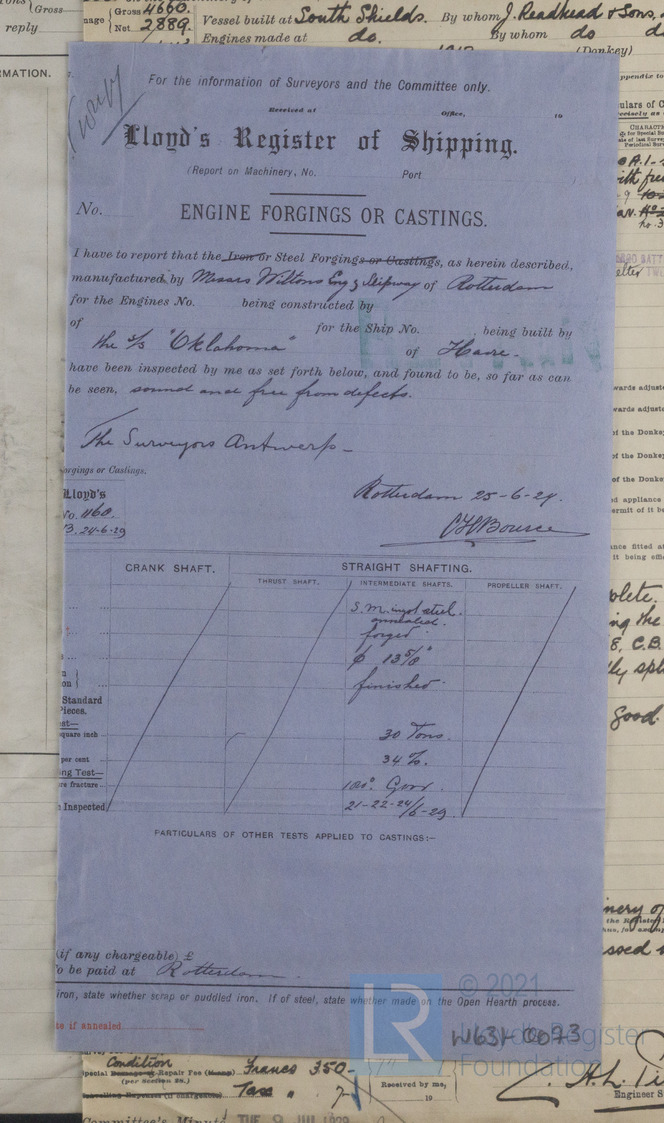 Gross
reply
RMATION.
Gross 4660.
Net 2889.
Vessel built at South Shields. By whom J. Readhead & Sons,
Engines made at do. By whom do
(Donkey)
For the information of Surveyors and the Committee only.
Received at Office, 19
Lloyd's Register of Shipping.
(Report on Machinery, No. Port
No. ENGINE FORGINGS OR CASTINGS.
I have to report that the Iron or Steel Forgings or Castings, as herein described,
manufactured by Messrs Wiltons Eng & Slipway of Rotterdam
for the Engines No. being constructed by
of for the Ship No. being built by
the s/s "Oklahoma" of Havre.
have been inspected by me as set forth below, and found to be, so far as can
be seen, sound and free from defects.
The Surveyors Antwerp
orgings or Castings.
Lloyd's
No. 1160.
B. 24-6-29
Rotterdam 25-6-29.
CRANK SHAFT. STRAIGHT SHAFTING.
THRUST SHAFT. INTERMEDIATE SHAFTS. PROPELLER SHAFT.
S.M. ingot steel
annealed.
forged
ϕ 13 5/8"
finished
Standard
Pieces.
est—
square inch 30 Tons.
per cent 34 %.
ng Test—
re fracture 180°. Good.
Inspected 21-22-24/6-29.
PARTICULARS OF OTHER TESTS APPLIED TO CASTINGS:—
(if any chargeable) £
o be paid at Rotterdam.
iron, state whether scrap or puddled iron. If of steel, state whether made on the Open Hearth process.
te if annealed
© 2021
LR
Lloyd's Register
Foundation
W631-0073
Condition
Special Damage or Repair Fee (per Section 28.) Francs 350-
Travelling Expenses (if chargeable) Taxe " 7-
Received by me,
19
Engineer S
Committee's Minute TUE 9 JUL 1929